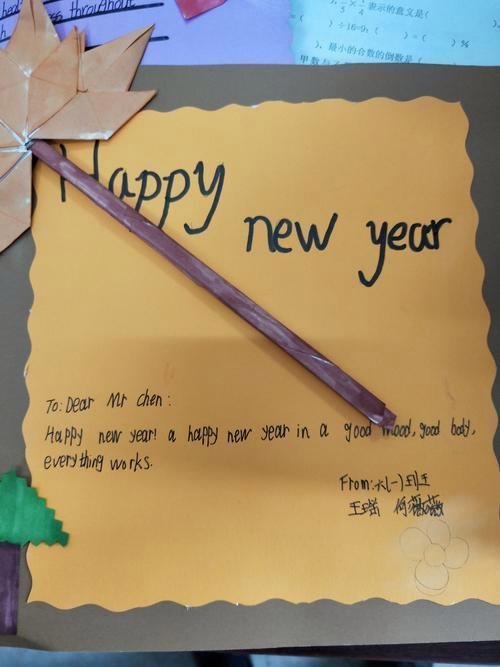 throughout
1/5 × 1/4 表示的意义是(
) ÷16=9:( ) = ( )%
)、最小的合数的倒数是(
甲数与
Happy
new year
To: Dear Mr chen:
Happy new year! a happy new year in a good mood, good body,
everything works.
From:六(一)班王
王瑶 何薇薇